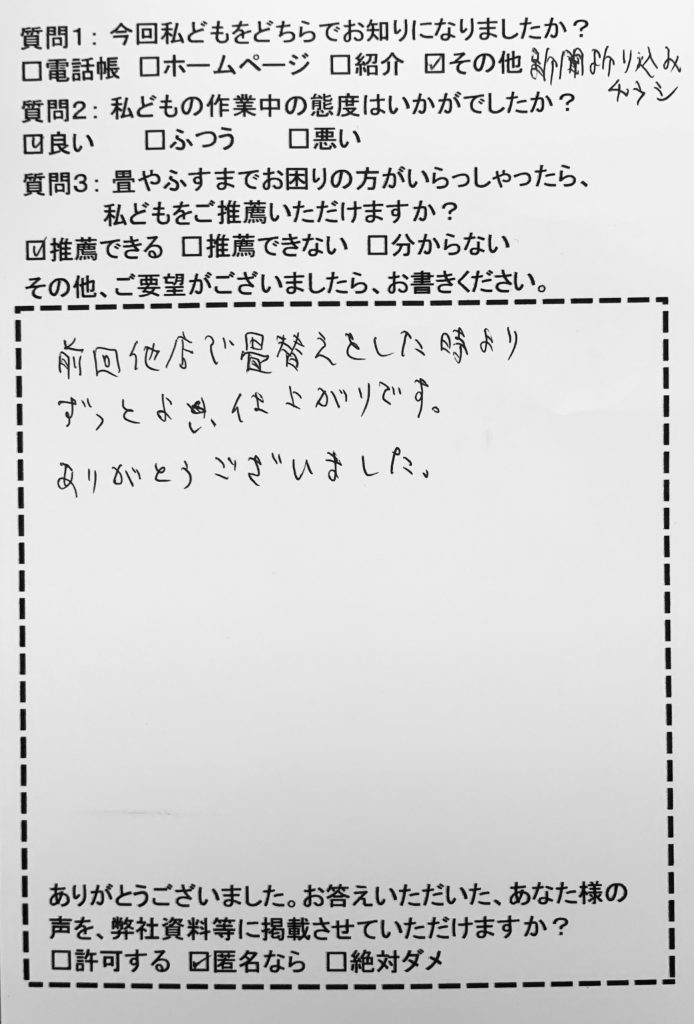 質問1：今回私どもをどちらでお知りになりましたか？
□電話帳 □ホームページ □紹介 ☑その他 新聞折り込み
チラシ
質問2：私どもの作業中の態度はいかがでしたか？
☑良い □ふつう □悪い
質問3：畳やふすまでお困りの方がいらっしゃったら、
私どもをご推薦いただけますか？
☑推薦できる □推薦できない □分からない
その他、ご要望がございましたら、お書きください。
前回他店で畳替えをした時より
ずっとよき、仕上がりです。
ありがとうございました。
ありがとうございました。お答えいただいた、あなた様の
声を、弊社資料等に掲載させていただけますか？
□許可する ☑匿名なら □絶対ダメ